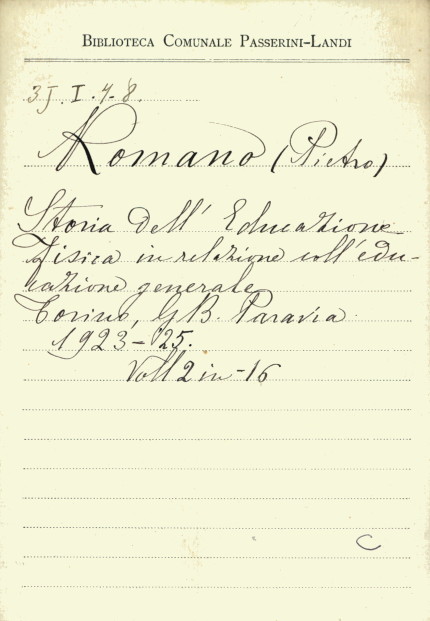 BIBLIOTECA COMUNALE PASSERINI-LANDI
3J. I. 4. 8.
Romano (Pietro)
Storia dell' Educazione
Fisica in relazione coll' edu-
cazione generale
Torino, G. B. Paravia
1923-25.
Voll 2 in-16
C